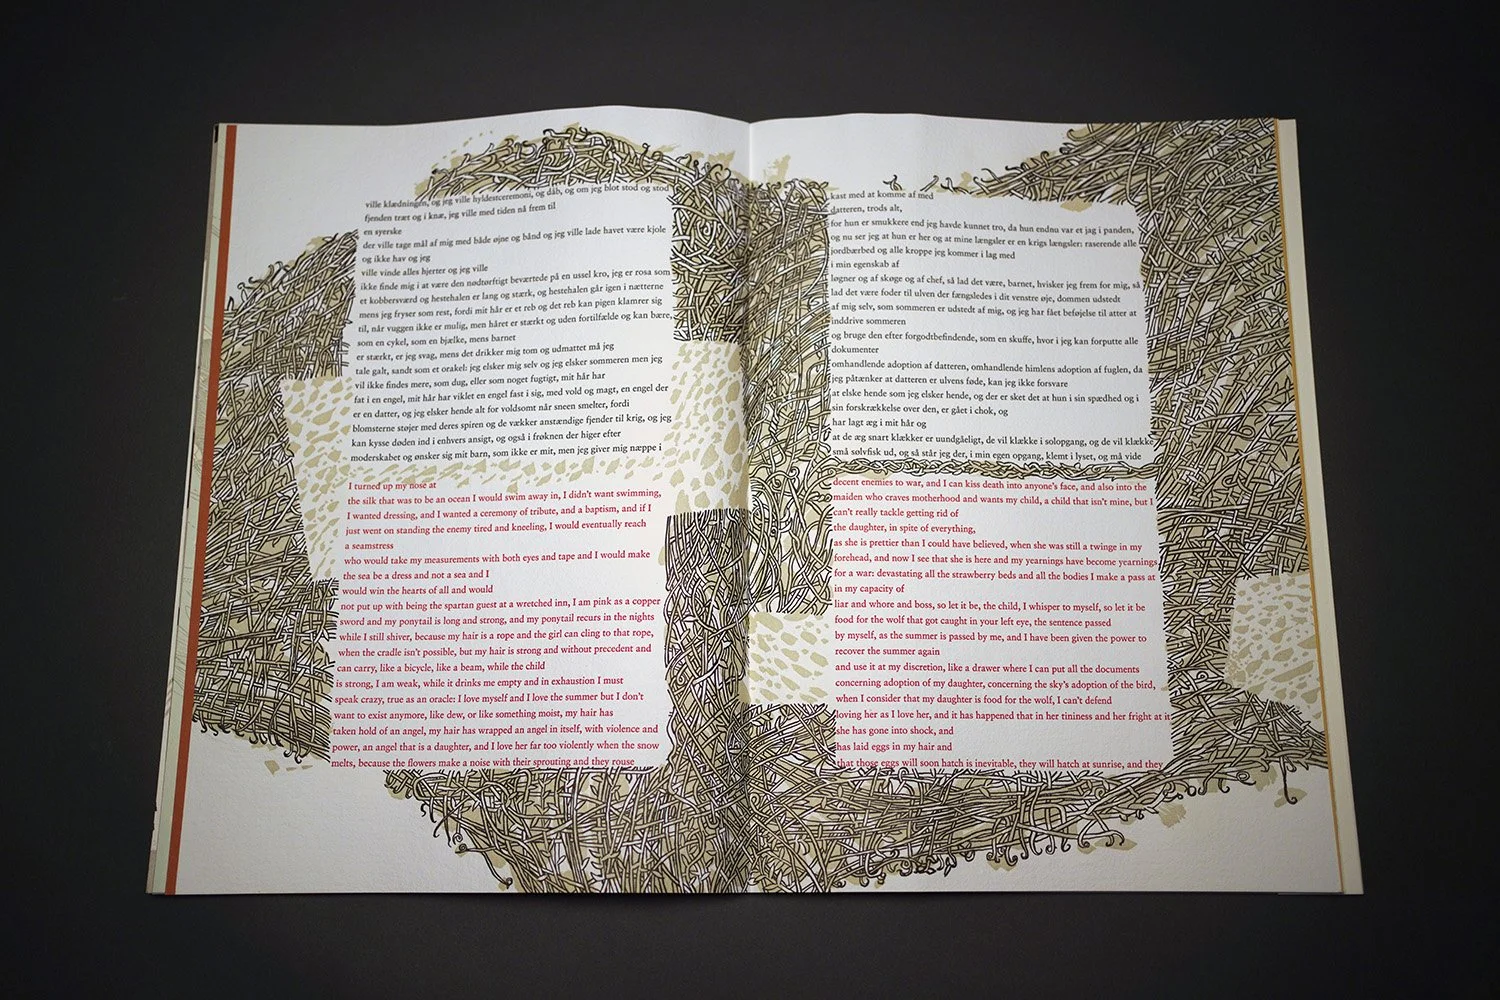 ville klædningen, og jeg ville hyldestceremoni, og dåb, og om jeg blot stod og stod
fjenden træt og i knæ, jeg ville med tiden nå frem til
en syerske
der ville tage mål af mig med både øjne og bånd og jeg ville lade havet være kjole
og ikke hav og jeg
ville vinde alles hjerter og jeg ville
ikke finde mig i at være den nødtørftigt beværtede på en ussel kro, jeg er rosa som
et kobbersværd og hestehalen er lang og stærk, og hestehalen går igen i nætterne
mens jeg fryser som rest, fordi mit hår er et reb og det reb kan pigen klamrer sig
til, når vuggen ikke er mulig, men håret er stærkt og uden fortilfælde og kan bære,
som en cykel, som en bjælke, mens barnet
er stærkt, er jeg svag, mens det drikker mig tom og udmattet må jeg
tale galt, sandt som et orakel: jeg elsker mig selv og jeg elsker sommeren men jeg
vil ikke findes mere, som dug, eller som noget fugtigt, mit hår har
fat i en engel, mit hår har viklet en engel fast i sig, med vold og magt, en engel der
er en datter, og jeg elsker hende alt for voldsomt når sneen smelter, fordi
blomsterne støjer med deres spiren og de vækker anstændige fjender til krig, og jeg
kan kysse døden ind i enhvers ansigt, og også i frøknen der higer efter
moderskabet og ønsker sig mit barn, som ikke er mit, men jeg giver mig næppe i
I turned up my nose at
the silk that was to be an ocean I would swim away in, I didn't want swimming,
I wanted dressing, and I wanted a ceremony of tribute, and a baptism, and if I
just went on standing the enemy tired and kneeling, I would eventually reach
a seamstress
who would take my measurements with both eyes and tape and I would make
the sea be a dress and not a sea and I
would win the hearts of all and would
not put up with being the spartan guest at a wretched inn, I am pink as a copper
sword and my ponytail is long and strong, and my ponytail recurs in the nights
while I still shiver, because my hair is a rope and the girl can cling to that rope,
when the cradle isn't possible, but my hair is strong and without precedent and
can carry, like a bicycle, like a beam, while the child
is strong, I am weak, while it drinks me empty and in exhaustion I must
speak crazy, true as an oracle: I love myself and I love the summer but I don't
want to exist anymore, like dew, or like something moist, my hair has
taken hold of an angel, my hair has wrapped an angel in itself, with violence and
power, an angel that is a daughter, and I love her far too violently when the snow
melts, because the flowers make a noise with their sprouting and they rouse
kast med at komme af med
datteren, trods alt,
for hun er smukkere end jeg havde kunnet tro, da hun endnu var et jag i panden,
og nu ser jeg at hun er her og at mine længsler er en krigs længsler: raserende alle
jordbærbed og alle kroppe jeg kommer i lag med
i min egenskab af
løgner og af skøge og af chef, så lad det være, barnet, hvisker jeg frem for mig, så
lad det være foder til ulven der fængsledes i dit venstre øje, dommen udstedt
af mig selv, som sommeren er udstedt af mig, og jeg har fået beføjelse til atter at
inddrive sommeren
og bruge den efter forgodtbefindende, som en skuffe, hvor i jeg kan forputte alle
dokumenter
omhandlende adoption af datteren, omhandlende himlens adoption af fuglen, da
jeg påtænker at datteren er ulvens føde, kan jeg ikke forsvare
at elske hende som jeg elsker hende, og der er sket det at hun i sin spædhed og i
sin forskrækkelse over den, er gået i chok, og
har lagt æg i mit hår og
at de æg snart klækker er uundgåeligt, de vil klække i solopgang, og de vil klække
små sølvfisk ud, og så står jeg der, i min egen opgang, klemt i lyset, og må vide
decent enemies to war, and I can kiss death into anyone's face, and also into the
maiden who craves motherhood and wants my child, a child that isn't mine, but I
can't really tackle getting rid of
the daughter, in spite of everything,
as she is prettier than I could have believed, when she was still a twinge in my
forehead, and now I see that she is here and my yearnings have become yearnings
for a war: devastating all the strawberry beds and all the bodies I make a pass at
in my capacity of
liar and whore and boss, so let it be, the child, I whisper to myself, so let it be
food for the wolf that got caught in your left eye, the sentence passed
by myself, as the summer is passed by me, and I have been given the power to
recover the summer again
and use it at my discretion, like a drawer where I can put all the documents
concerning adoption of my daughter, concerning the sky's adoption of the bird,
when I consider that my daughter is food for the wolf, I can't defend
loving her as I love her, and it has happened that in her tininess and her fright at it
she has gone into shock, and
has laid eggs in my hair and
that those eggs will soon hatch is inevitable, they will hatch at sunrise, and they